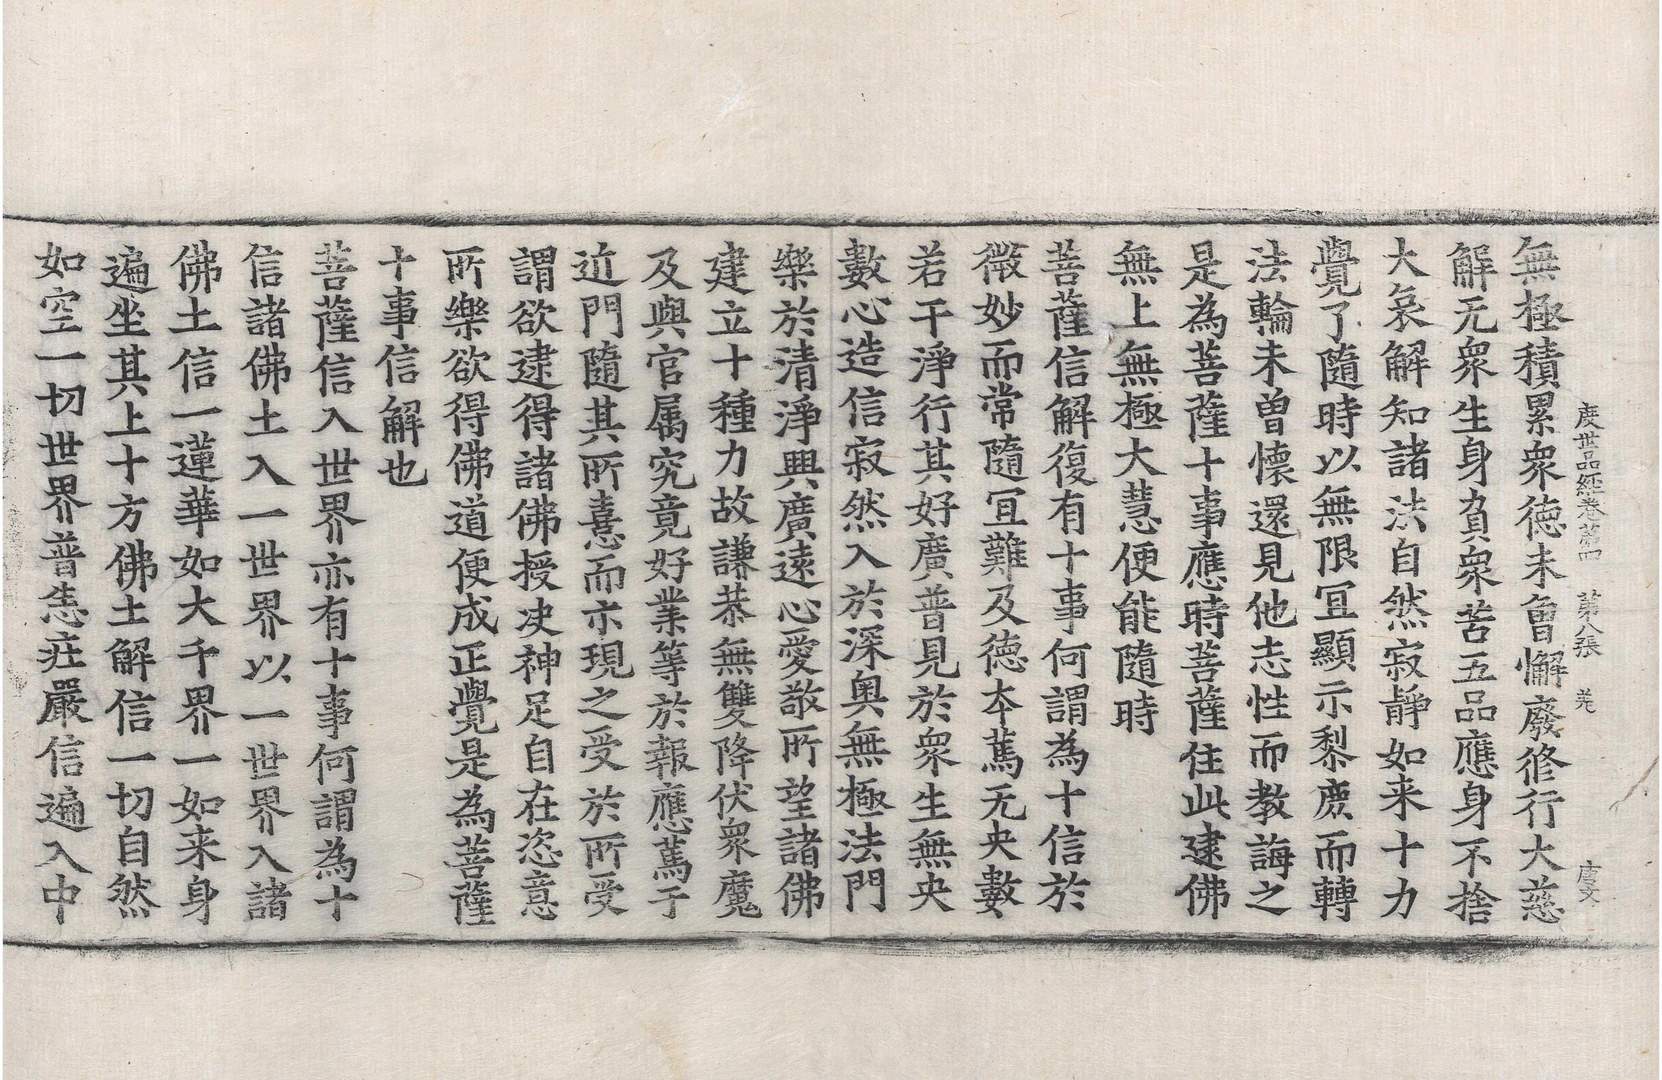 度世品經卷第四 第八張 羌 唐文
無極積累衆徳未曾懈廢修行大慈
解无衆生身負衆苦五品應身不捨
大哀解知諸法自然寂靜如来十力
覺了隨時以無限宜顯示黎庻而轉
法輪未曽懷還見他志性而教誨之
是為菩薩十事應時菩薩住此逮佛
無上無極大慧便能隨時
菩薩信解復有十事何謂為十信於
微妙而常隨宜難及徳夲篤无央數
若干淨行其好廣普見於衆生無央
數心造信寂然入於深奥無極法門
樂於清淨興廣遠心愛敬所望諸佛
建立十種力故謙恭無雙降伏衆魔
及與官属究竟好業等於報應篤于
近門隨其所憙而亦現之受於所受
謂欲逮得諸佛授决神足自在恣意
所樂欲得佛道便成正覺是為菩薩
十事信解也
菩薩信入世界亦有十事何謂為十
信諸佛土入一世界以一世界入諸
佛土信一蓮華如大千界一如来身
遍坐其上十方佛土解信一切自然
如空一切世界普悉莊嚴信遍入中